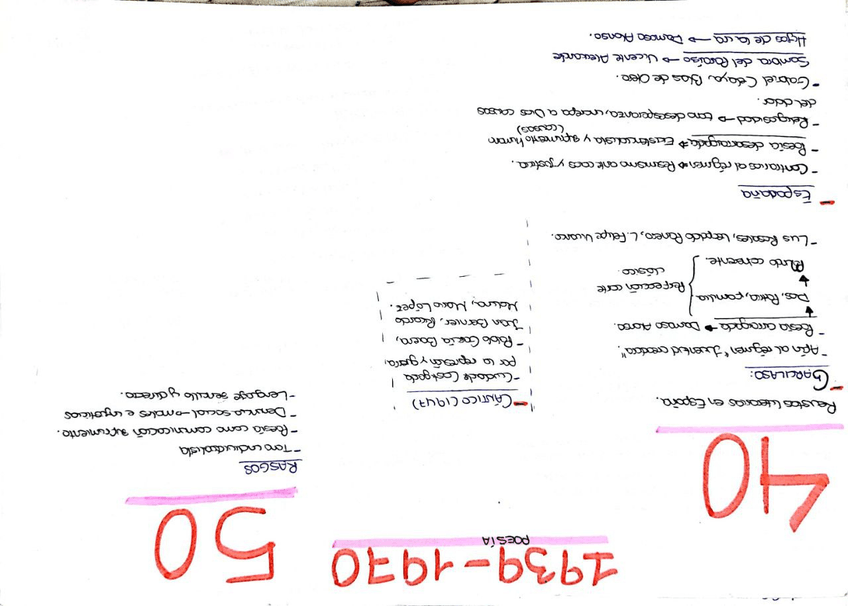 1939-1970
POESÍA
40
Revistas literarias en España.
- GARCILASO:
- Afín al régimen "Juventud creadora".
- Poesía arraigada → Damaso Alonso.
Dios, Patria, familia.
Mundo coherente.
Perfección corte
clásico
- Luis Rosales, Leopoldo Panero, L. Felipe Vivanco.
- Espadaña
- Contrarios al régimen → Pesimismo ante caos y justicia.
- Poesía desarraigada → Existencialista y sufrimiento human
(causas)
- Religiosidad → tono desesperanza, increpa a Dios causas
del dolor.
- Gabriel Celaya, Blas de Otero.
Sombra del Paraíso → Vicente Aleixandre
Hijos de la ira → Damaso Alonso.
- CÁNTICO (1947)
- Ciudad de Castigada
por la represión y guerra.
- Pablo García Baena,
Juan Bernier, Ricardo
Molina, Mario López.
50
RASGOS
- Tono individualista
- Poesía como comunicación sufrimiento.
- Denuncia social → males e injusticias
- Lenguaje sencillo y directo.